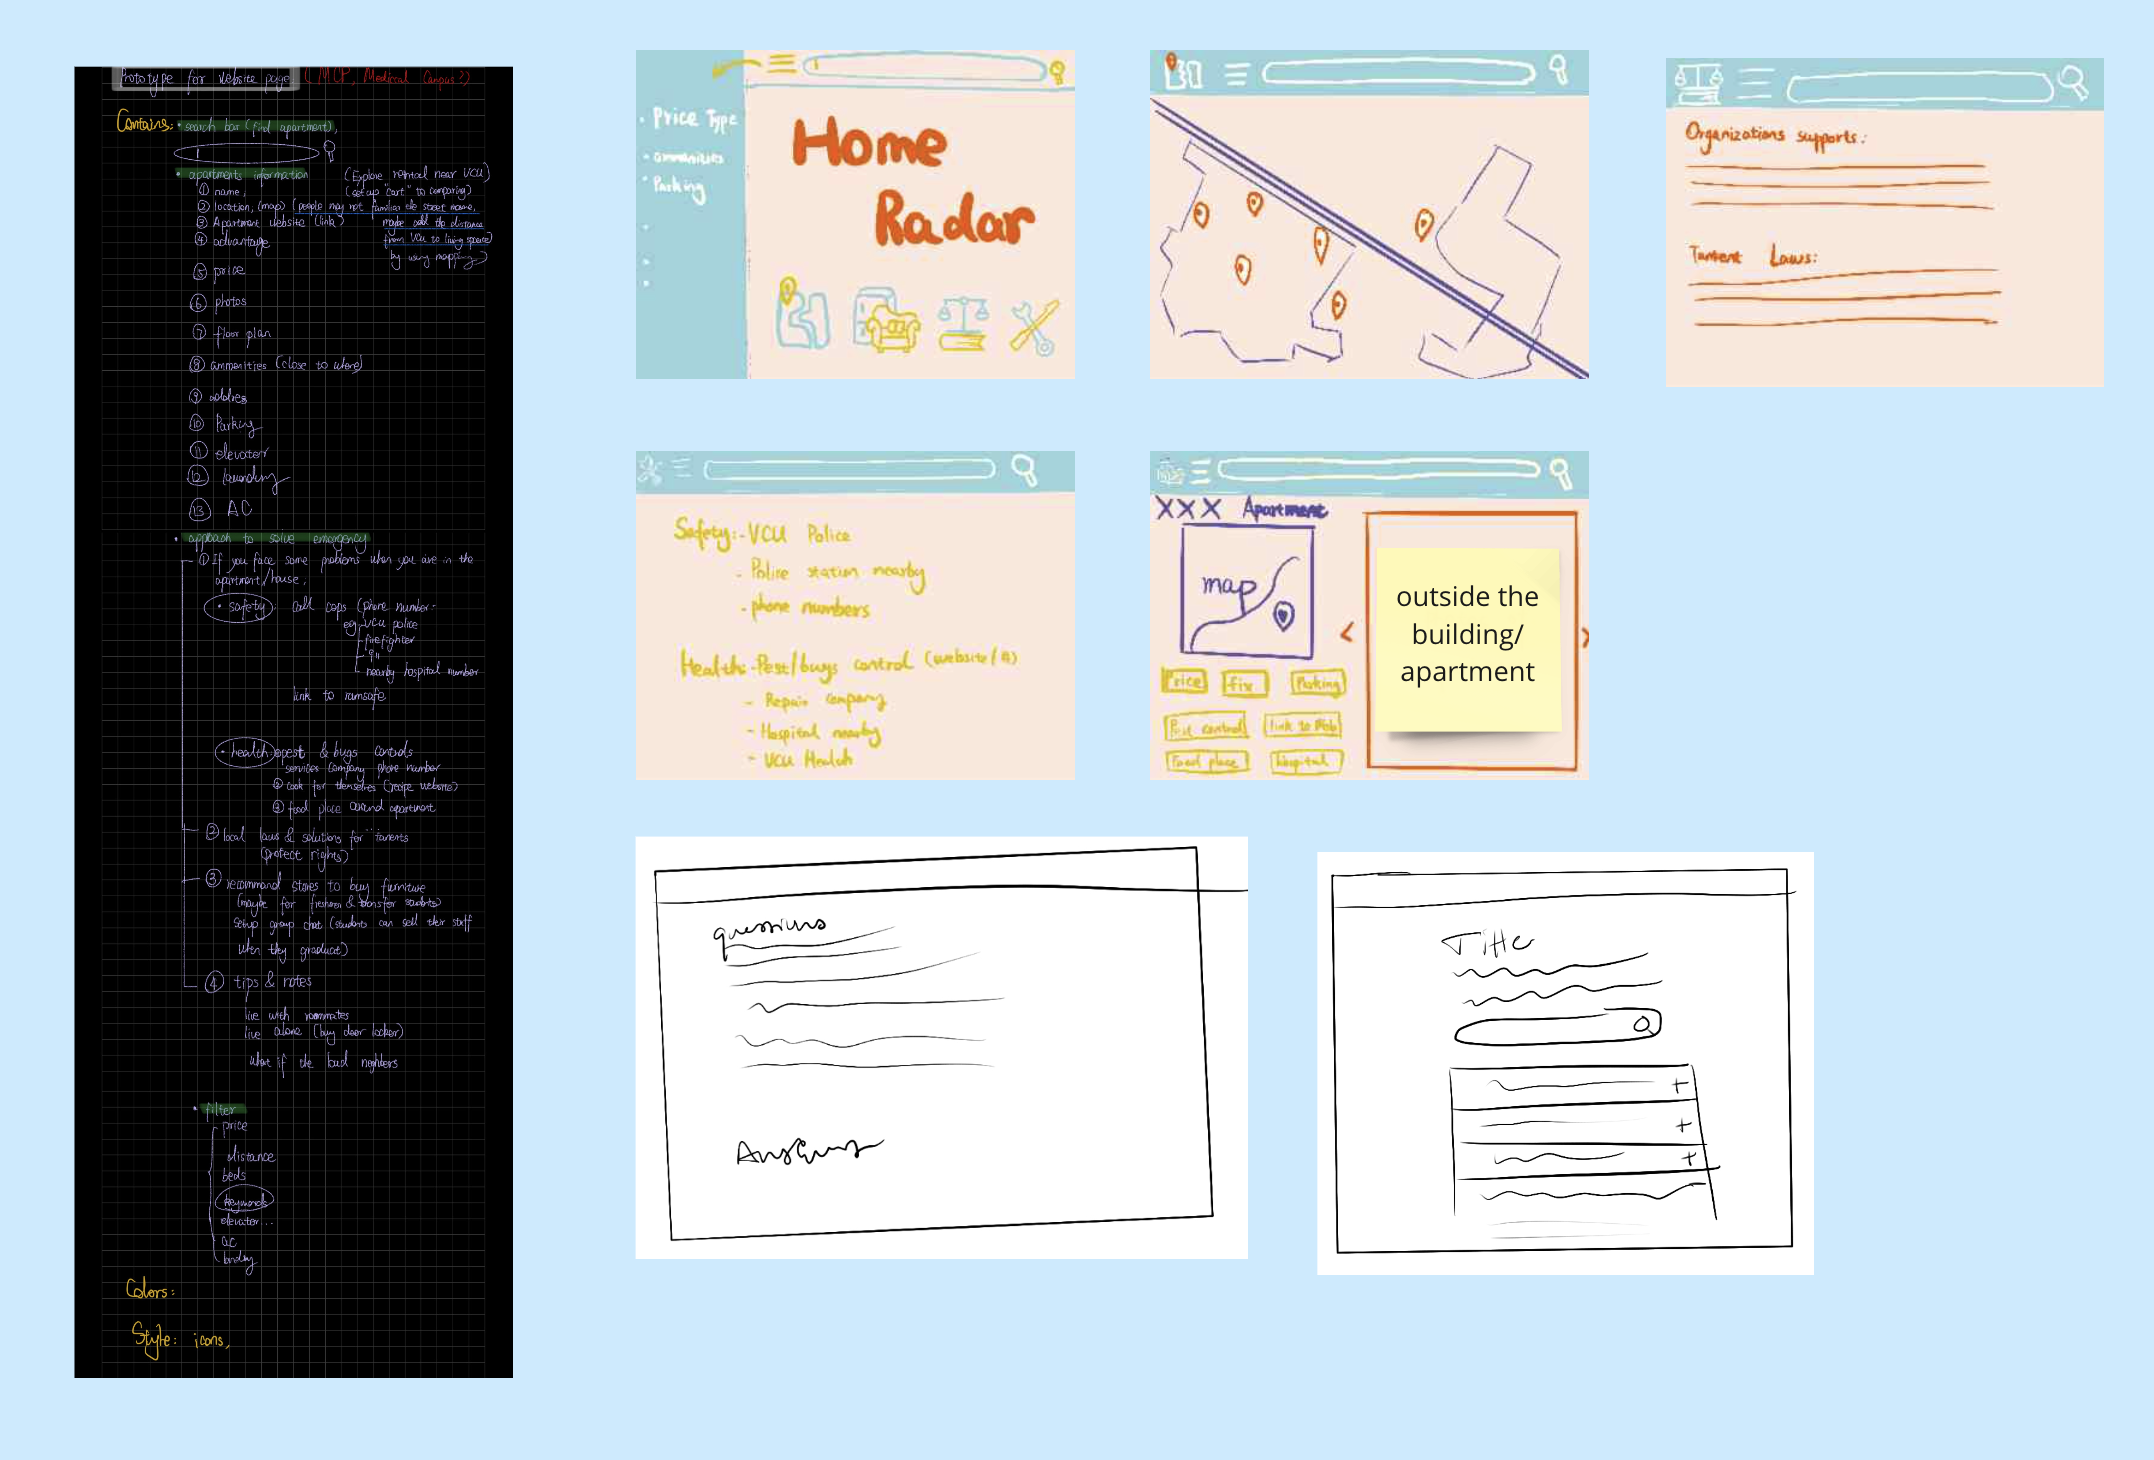 Prototype for website page: (MCP, Medical Campus?)
Contains: • search bar (find apartment),
• apartments information
(Explore rental near VCU)
(set up "cart" to comparing)
① name,
② location, (map) (people may not familiar the street name,
③ Apartment website (link)
maybe add the distance
④ advantage
from VCU to living space)
by using mapping)
⑤ price
⑥ photos
⑦ floor plan
⑧ ammenities (close to where)
⑨ addres
⑩ Parking
⑪ elevator
⑫ laundry
⑬ AC
• approach to solve emergency
① If you face some problems when you are in the
apartment/house,
• safety: call cops (phone number-
eg. VCU police
firefighter
911
nearby hospital number
link to ramsafe
• health: pest & bugs controls
services company phone number
② cook for themselves (recipe website)
③ food place around apartment
② local laws & solutions for tanents
(protect rights)
③ recommand stores to buy furniture
(maybe for freshmen & transfer students)
setup group chat (students can sell their stuff
when they graduate)
④ tips & notes
live with roommates
live alone (buy door locker)
what if the bad neighbors
• filter
price
distance
beds
keywords
elevator...
ac
Colors:
Style: icons,
• Price Type
• ammenities
• Parking
Home
Radar
Organizations supports:
Tantent Laws:
Safety: - VCU Police
- Police station nearby
- phone numbers
Health: - Pest/bugs control (website/#)
- Repair company
- Hospital nearby
- VCU Health
XXX Apartment
map
Price
fix
Parking
Pest control
link to Web
Food place
Hospital
<
outside the
building/
apartment
>
questions
Answers
Title
+
+
+